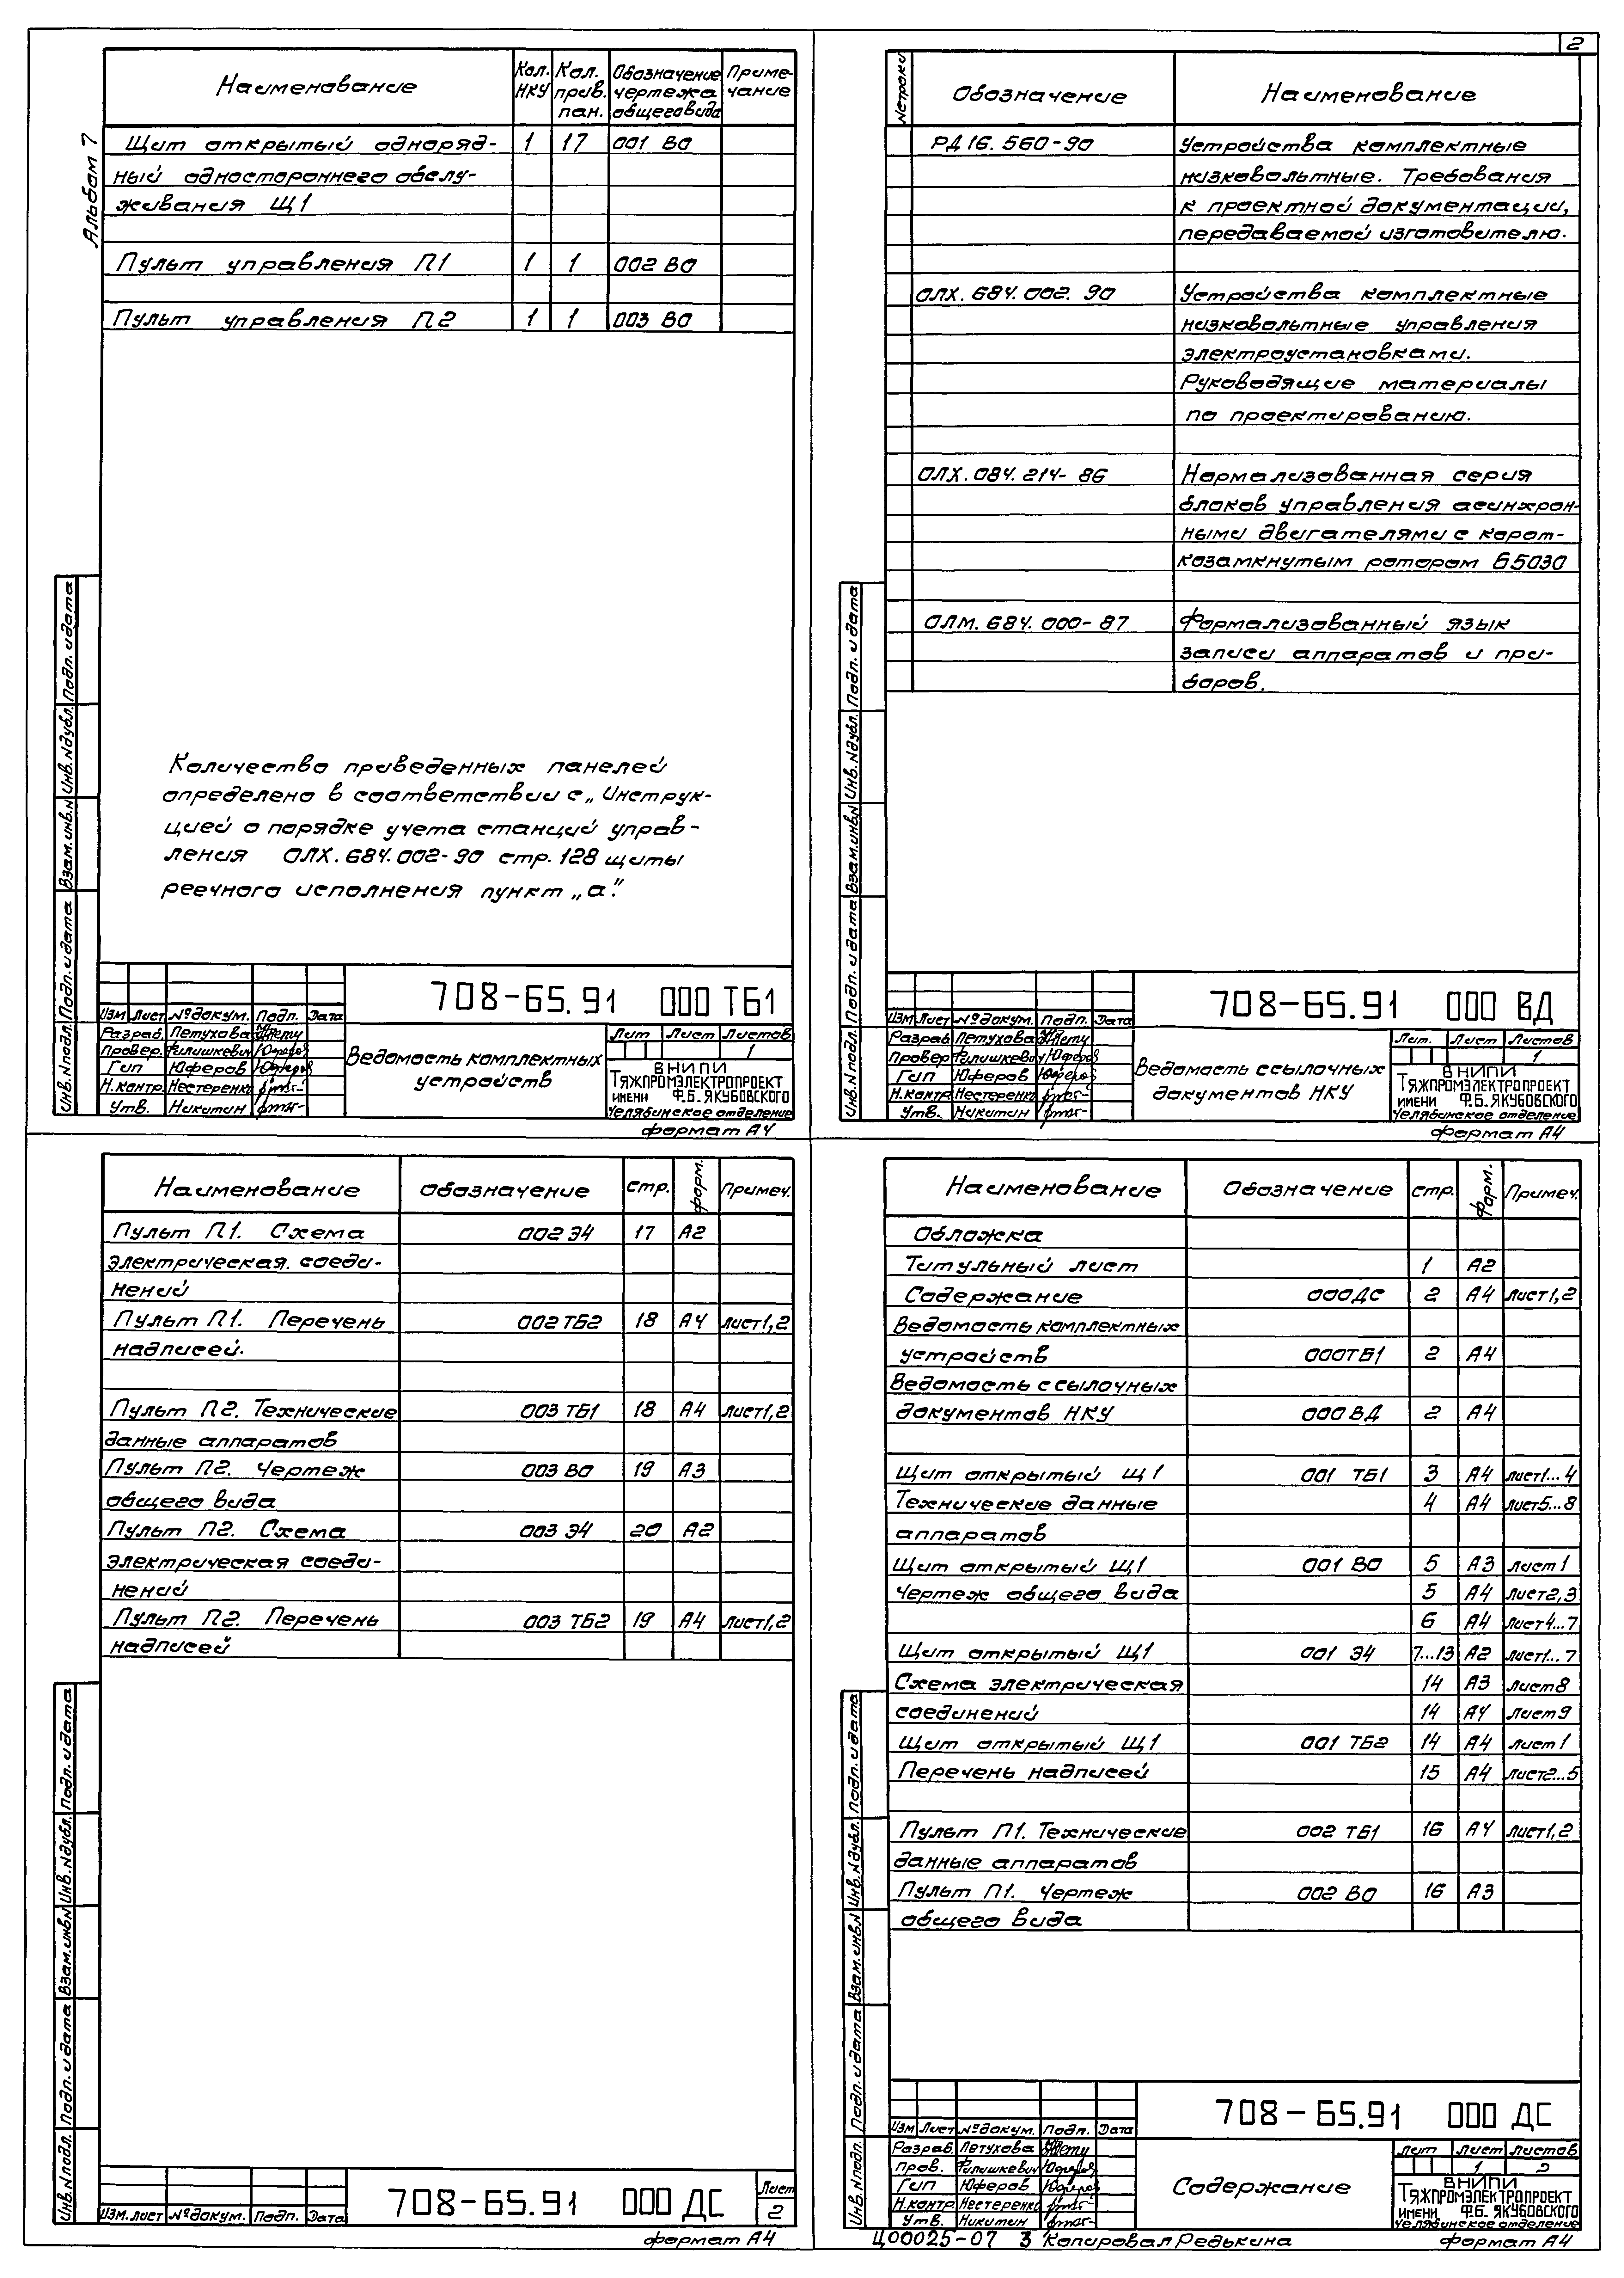 2
Альбом 7
Наименование Кол. НКУ Кол. прив. пан. Обозначение чертежа общего вида Примечание
Щит открытый однoряд- 1 17 001 ВО
ный одностороннего обслу-
живания Щ1
Пульт управления П1 1 1 002 ВО
Пульт управления П2 1 1 003 ВО
Количество приведенных панелей
определено в соответствии с „Инструк-
цией о порядке учета станций управ-
ления ОЛХ.684.002-90 стр.128 щиты
реечного исполнения пункт „а".
Инв.N подл. Подп. и дата Взам.инв.N Инв.N дубл. Подп. и дата
708-65.91 000 ТБ1
Изм Лист №докум. Подп. Дата
Разраб. Петухова
Провер. Филишкевич
Гип Юферов
Н.контр. Нестеренко
Утв. Никитин
Ведомость комплектных
устройств
Лит Лист Листов
1
ВНИПИ
Тяжпромэлектропроект
имени Ф.Б. Якубовского
Челябинское отделение
формат А4
N строки Обозначение Наименование
РД 16. 560-90 Устройства комплектные
низковольтные. Требования
к проектной документации,
передаваемой изготовителю.
ОЛХ. 684. 002. 90 Устройства комплектные
низковольтные управления
электроустановками.
Руководящие материалы
по проектированию.
ОЛХ. 084. 214- 86 Нормализованная серия
блоков управления асинхрон-
ными двигателями с корот-
козамкнутым ротором Б5030
ОЛМ. 684. 000- 87 Формализованный язык
записи аппаратов и при-
боров.
Инв.N подл. Подп. и дата Взам.инв.N Инв.N дубл. Подп. и дата
708-65.91 000 ВД
Изм Лист №докум. Подп. Дата
Разраб. Петухова
Провер Филишкевич
Гип Юферов
Н.контр Нестеренко
Утв. Никитин
Ведомость ссылочных
документов НКУ
Лит. Лист Листов
1
ВНИПИ
Тяжпромэлектропроект
имени Ф.Б. Якубовского
Челябинское отделение
формат А4
Наименование Обозначение Стр. Форм. Примеч.
Пульт П1. Схема 002 Э4 17 А2
электрическая. соеди-
нений
Пульт П1. Перечень 002 ТБ2 18 А4 лист1,2
надписей.
Пульт П2. Технические 003 ТБ1 18 А4 лист1,2
данные аппаратов
Пульт П2. Чертеж 003 ВО 19 А3
общего вида
Пульт П2. Схема 003 Э4 20 А2
электрическая соеди-
нений
Пульт П2. Перечень 003 ТБ2 19 А4 лист1,2
надписей
Инв.N подл. Подп. и дата Взам.инв.N Инв.N дубл. Подп. и дата
Изм. лист №докум. Подп. Дата
708-65.91 000 ДС
Лист
2
формат А4
Наименование Обозначение Стр. Форм. Примеч.
Обложка
Титульный лист 1 А2
Содержание 000ДС 2 А4 лист1,2
Ведомость комплектных
устройств 000ТБ1 2 А4
Ведомость ссылочных
документов НКУ 000 ВД 2 А4
Щит открытый Щ1 001 ТБ1 3 А4 лист1...4
Технические данные 4 А4 лист5...8
аппаратов
Щит открытый Щ1 001 ВО 5 А3 лист 1
чертеж общего вида 5 А4 лист2,3
6 А4 лист4...7
Щит открытый Щ1 001 Э4 7...13 А2 лист1...7
Схема электрическая 14 А3 лист8
соединений 14 А4 лист9
Щит открытый Щ1 001 ТБ2 14 А4 лист 1
Перечень надписей 15 А4 лист2...5
Пульт П1. Технические 002 ТБ1 16 А4 лист1,2
данные аппаратов
Пульт П1. Чертеж 002 ВО 16 А3
общего вида
Инв.N подл. Подп. и дата Взам.инв.N Инв.N дубл. Подп. и дата
708-65.91 000 ДС
Изм Лист №докум. Подп. Дата
Разраб. Петухова
Пров. Филишкевич
Гип Юферов
Н.контр Нестеренко
Утв. Никитин
Содержание
Лит Лист Листов
1 2
ВНИПИ
Тяжпромэлектропроект
имени Ф.Б. Якубовского
Челябинское отделение
Ц00025-07 3 Копировал Редькина формат А4